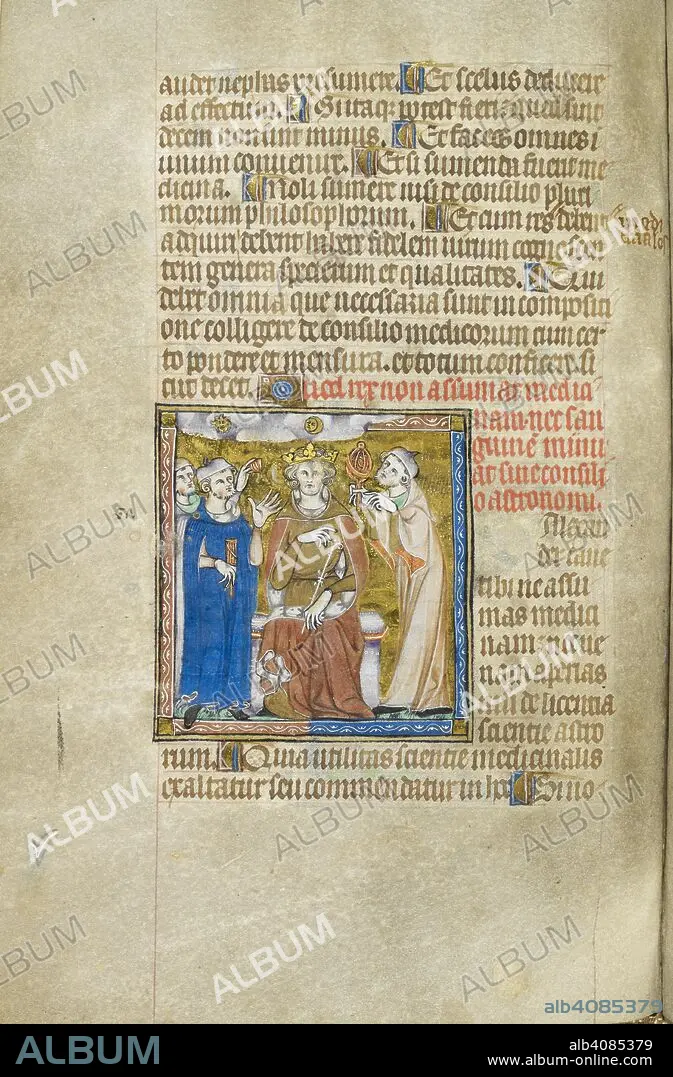 audet nephas presumere. Et scelus deducere
ad effectum. Si itaque potest fieri quod sint
decem non sint minus. Et facēs omnes i
unum convenire. Et si sumenda fuerit me
dicina. Noli sumere nisi de consilio pluri
morum philosophorum. Et cum res debent
adiuri debent habere fidelem virum
tem genera specierum et qualitates. Qui
debet omnia que necessaria sunt in compositi
one colligere de consilio medicorum cum cer
to pondere et mensura. et totum conficere si
cut decet. Quod rex non assumat medici
nam. nec san
guinē minu
at sine consili
o astronomi.
Alexan
der cave
tibi ne assu
mas medici
nam neque
nam aperias
nisi de licentia
scientie astro
rum. Quia utilitas scientie medicinalis
exaltatur seu commendatur in hoc
ALBUM
alb4085379
ALBUM
alb4085379
www.album-online.com